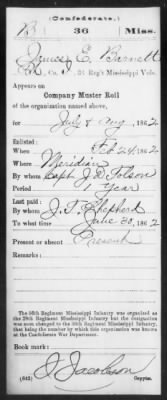 (Confederate.)
B 36 Miss.
James E. Barnett
Co. , 36 Reg't Mississippi Vols.
Appears on
Company Muster Roll
of the organization named above,
for July & Aug, 1862
Enlisted:
When Feb 24, 1862
Where Meridian
By whom Capt J. D.
Period 1 Year
Last paid:
By whom J. T. Shepherd
To what time June 30, 1862
Present or absent Present
Remarks:
The 36th Regiment Mississippi Infantry was organized as
the Regiment Mississippi Infantry but the designation
was soon changed to the 36th Regiment Mississippi Infantry,
that being the number by which this organization was known
at the Confederate War Department.
Book mark:
J. Jacobson
(642) Copyist.